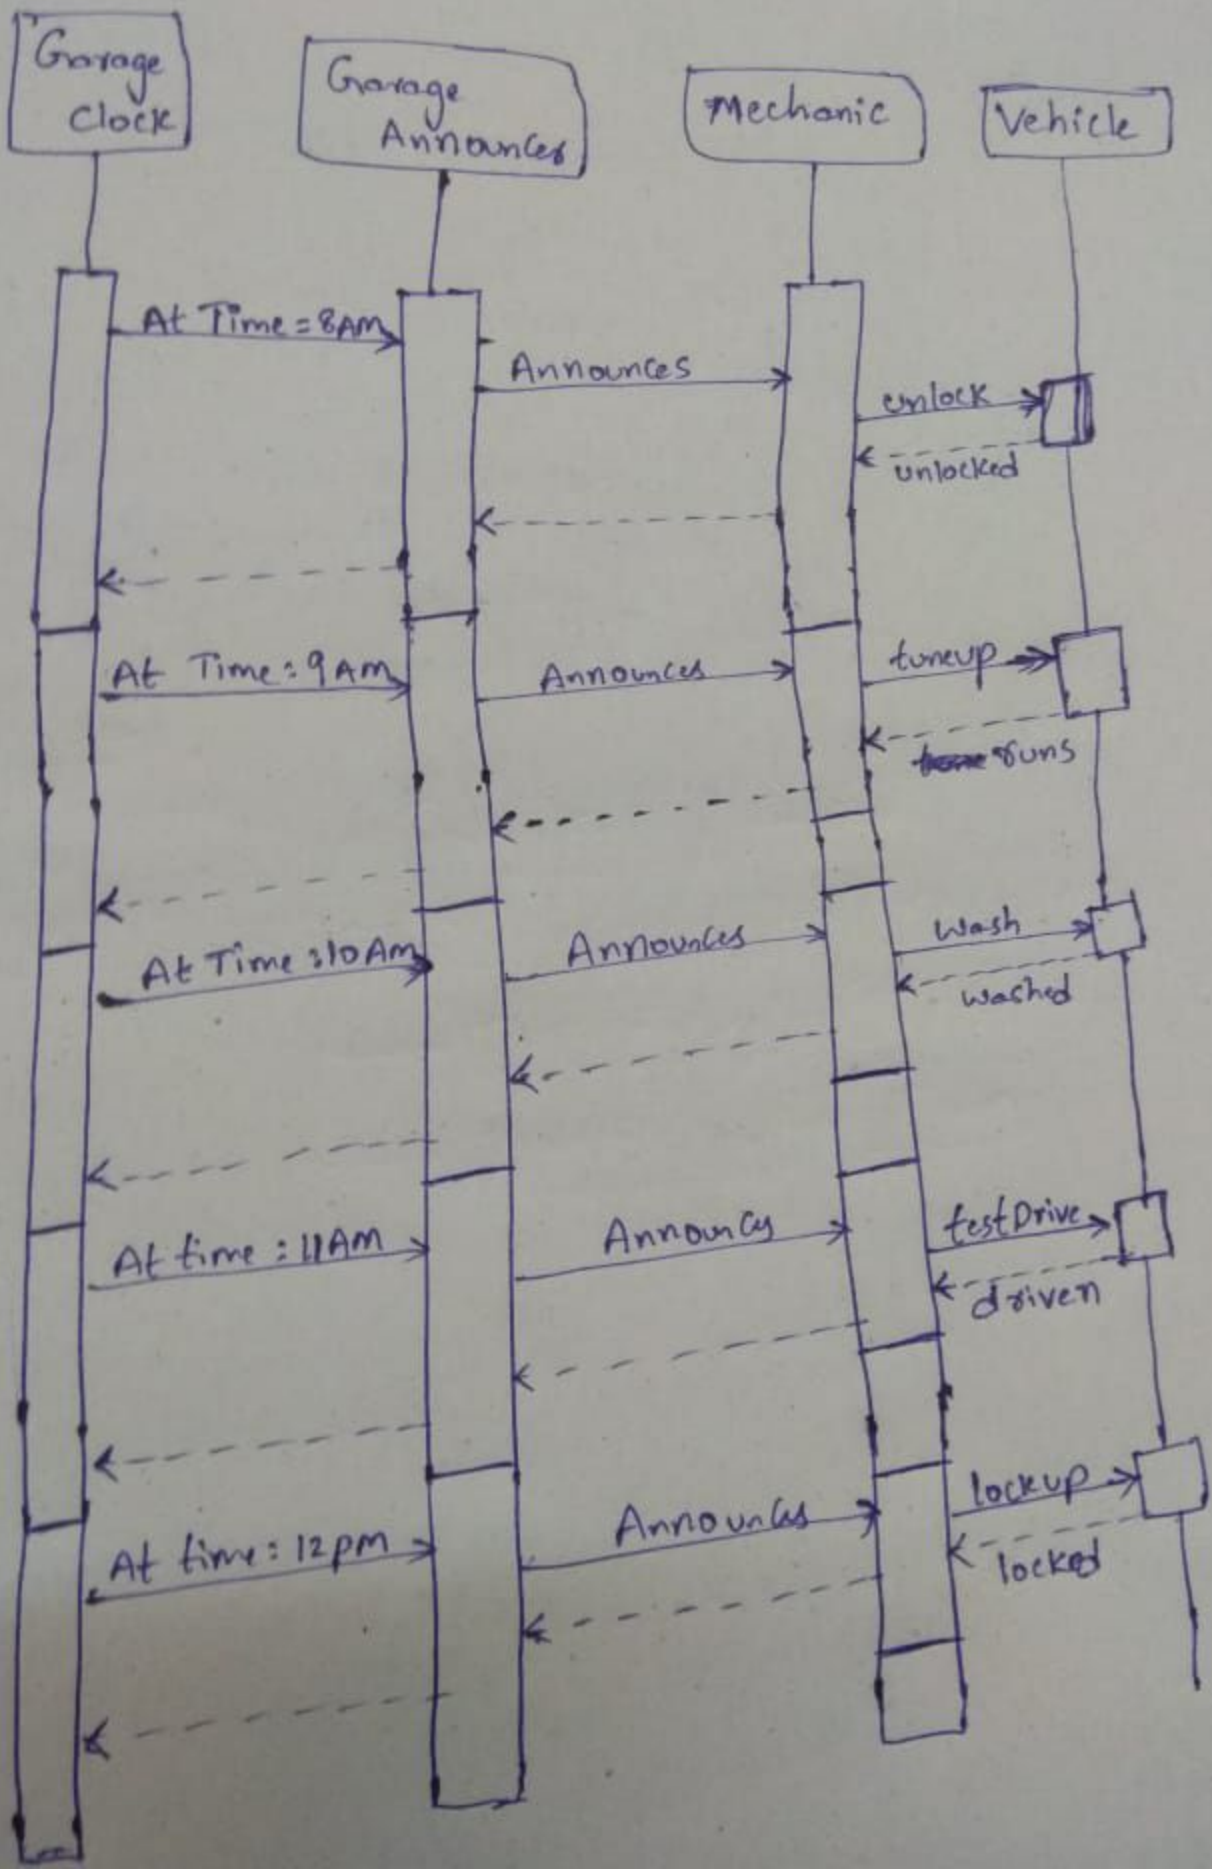 Garage
Clock
Garage
Announces
Mechanic
Vehicle
At Time = 8AM
Announces
unlock
unlocked
At Time : 9AM
Announces
tuneup
runs
At Time : 10AM
Announces
wash
washed
At time : 11AM
Announces
testDrive
driven
At time : 12pm
Announces
lockup
locked